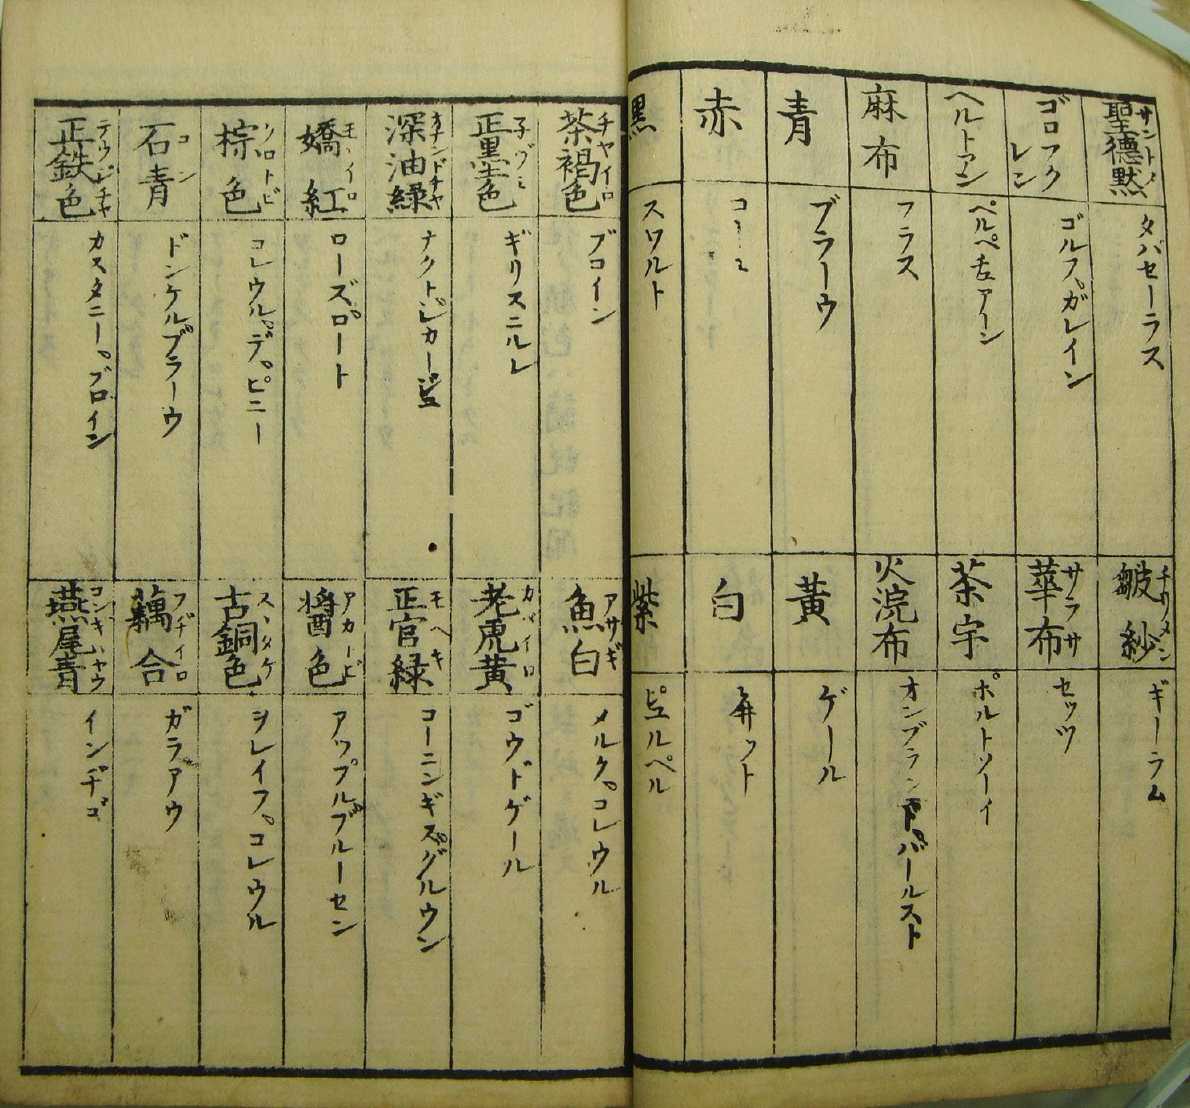 聖德黙 サントメ
タバセーラス
皺紗 チリメン
ギーラム
ゴロフクレン
ゴルフ。ガレイン
華布 サラサ
セッツ
ヘルトアン
ペルペ
茶宇
ポルトソーイ
麻布
フラス
火浣布
オンブランドバールスト
青
ブラーウ
黃
ゲール
赤
白
ットト
黑
スワルト
紫
ピュルペル
茶褐色 チャイロ
ブロイン
魚白 アサギ
メルク。コレウル
正墨色
ギリスニルレ
老虎黃 カバイロ
ゴウドゲール
深油綠
ナクト。レカーピュ
正官綠 モヘキ
コーニンギズグルウン
嬌紅 モヽイロ
ローズロート
醬色 アカトビ
アップルブルーセン
棕色 ソロトビ
コレウル。デ。ピニー
古銅色 スヽタケ
ヲレイフ。コレウル
石青 コン
ドンケルブラーウ
藕合 フヂイロ
ガラアウ
正鉄色
カスタニー。ブロイン
燕尾青
インヂゴ